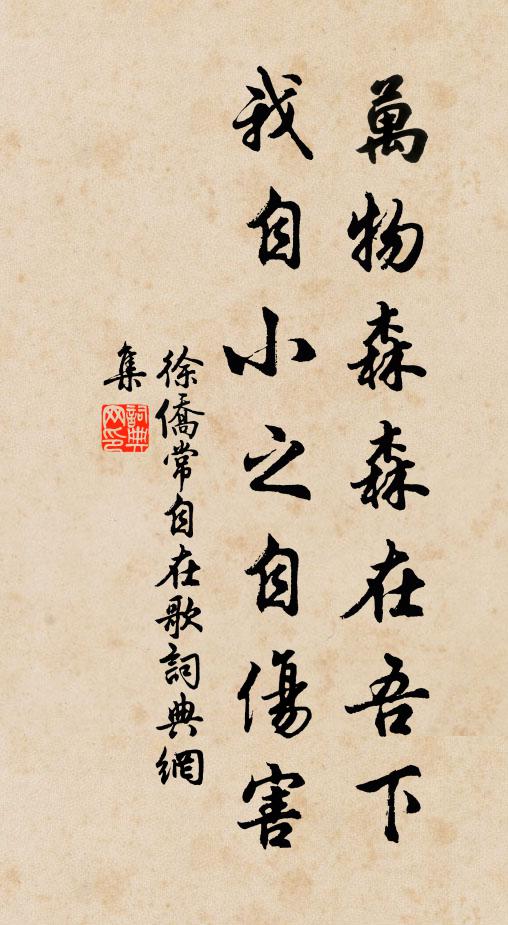 萬物森森在吾下
我自小之自傷害
徐僑常自在歌詞典網
集
詞典网印